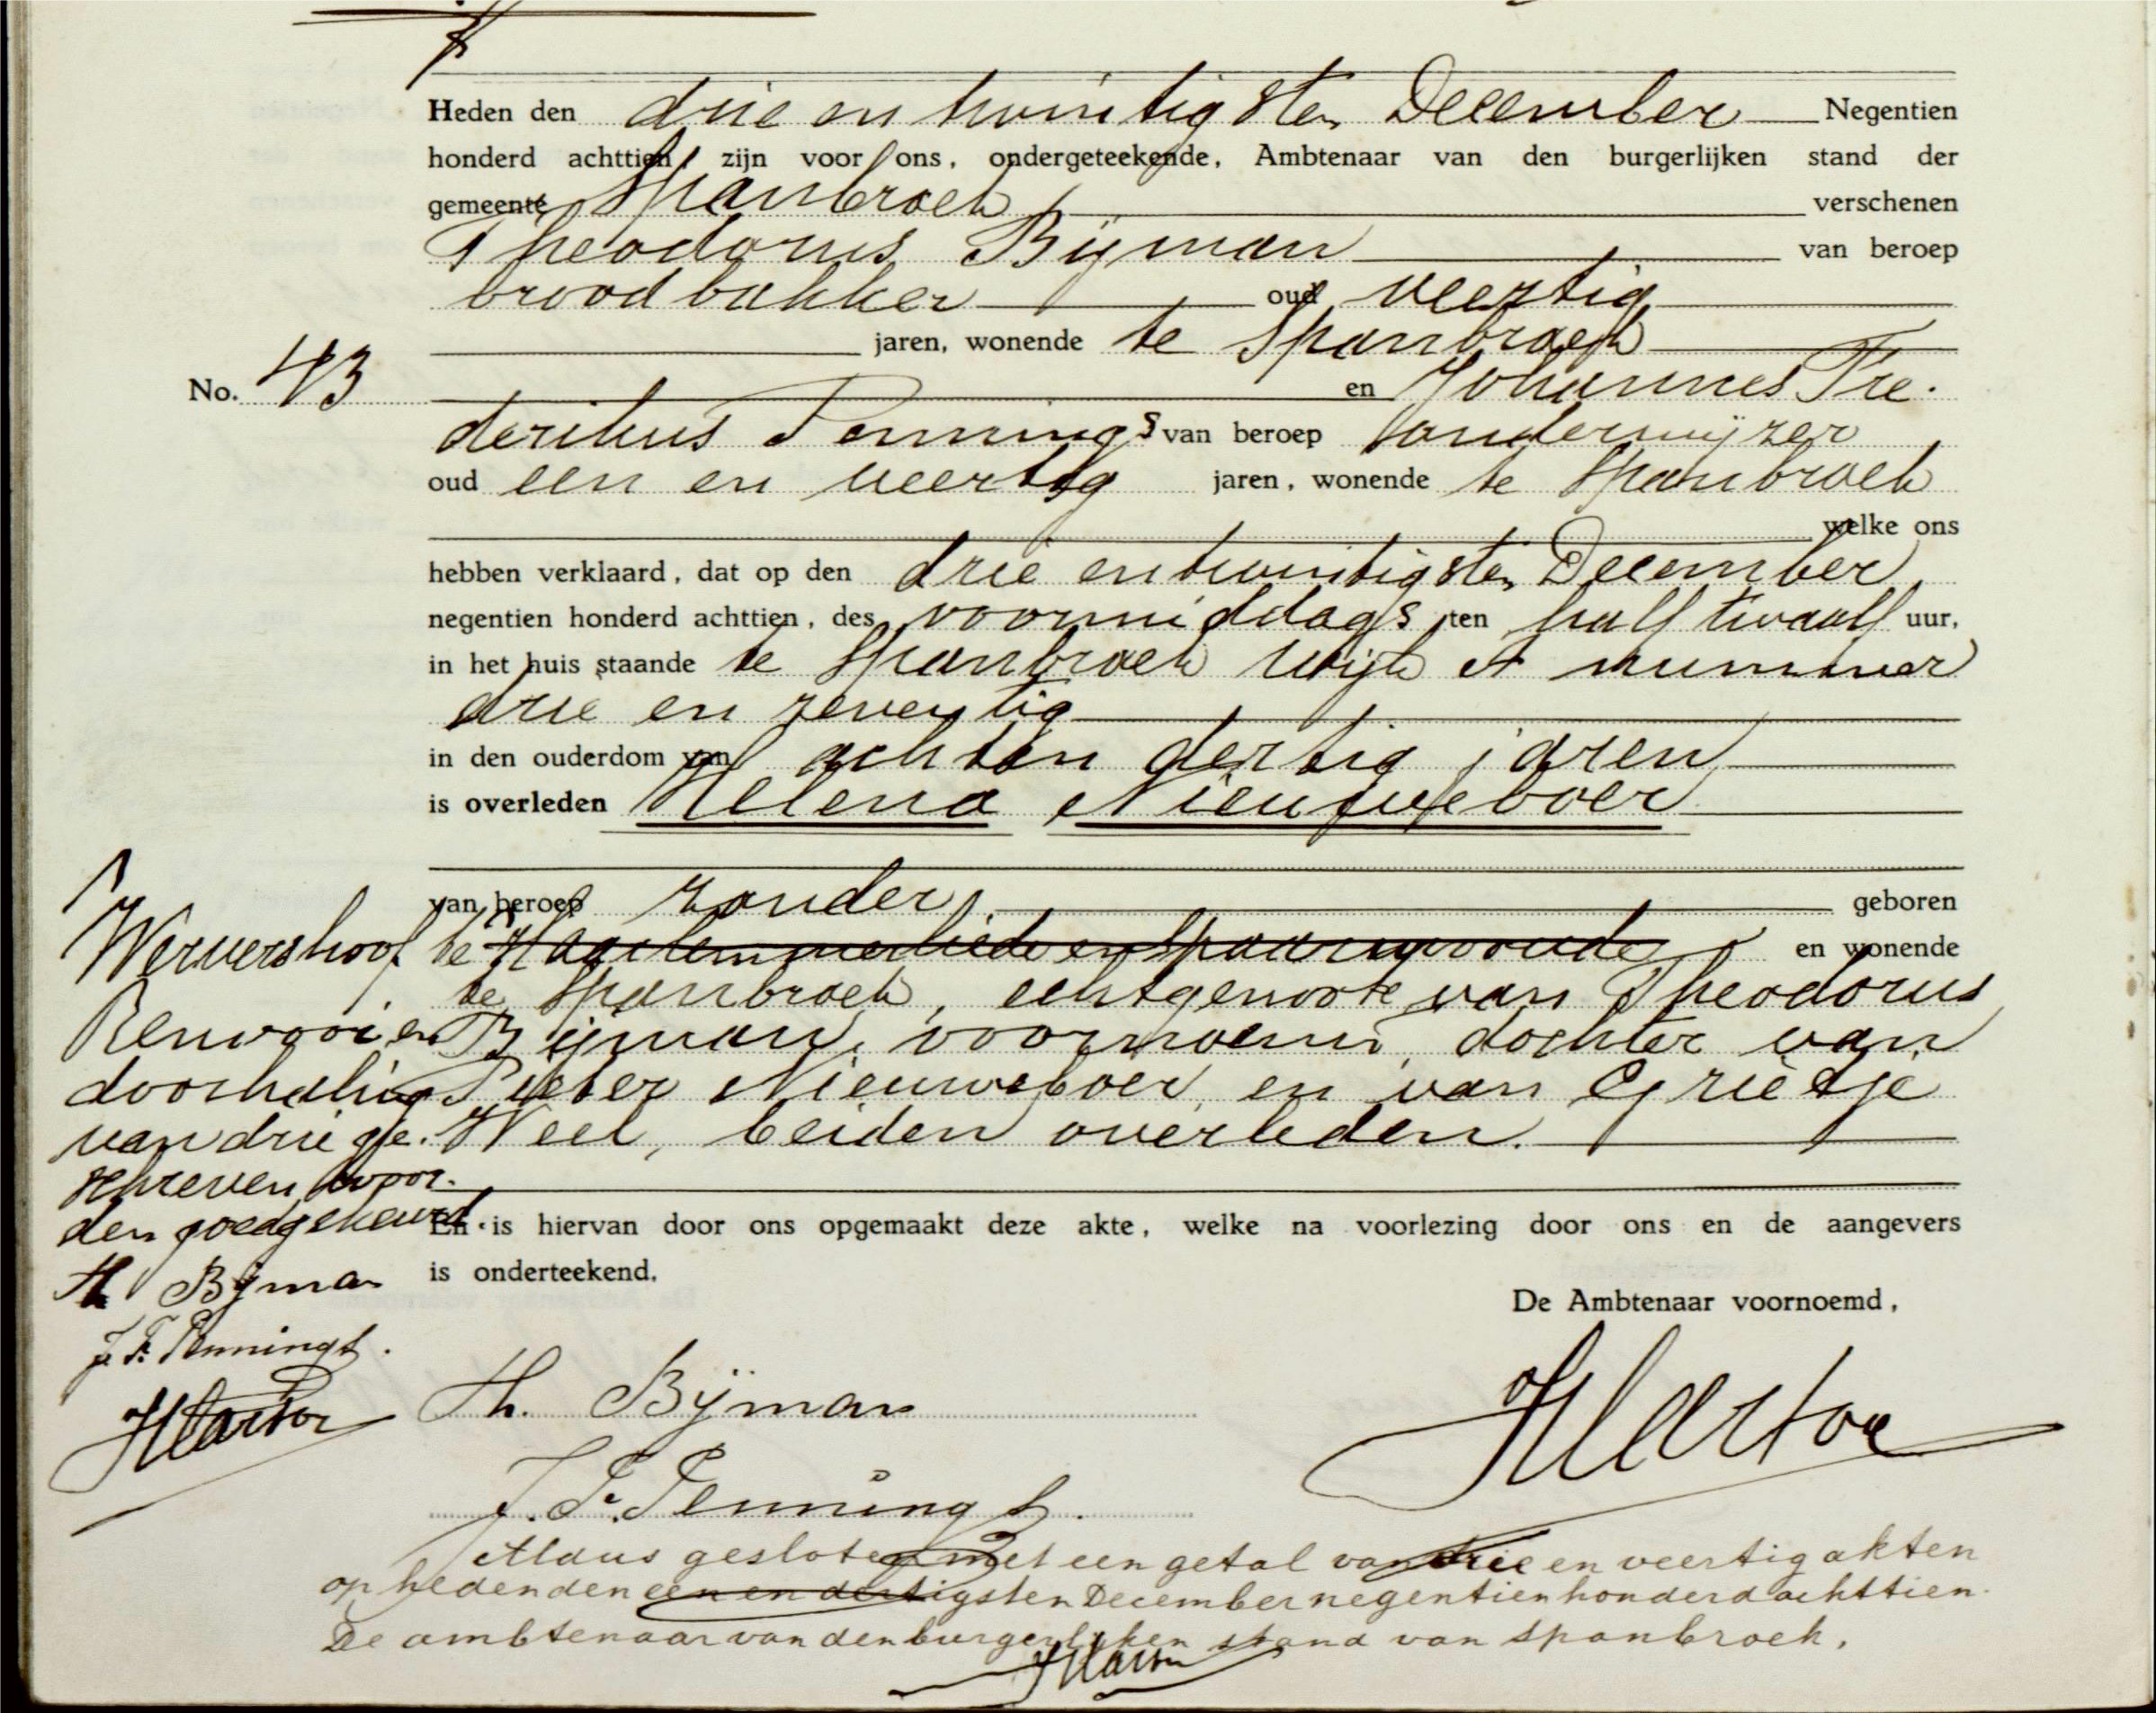 Heden den drie en twintigsten December Negentien
honderd achttien, zijn voor ons, ondergeteekende, Ambtenaar van den burgerlijken stand der
gemeente Spanbroek verschenen
Theodorus Bijman van beroep
broodbakker oud veertig
jaren, wonende te Spanbroek
No. 43 en Johannes Fre-
derikus Pennings van beroep onderwijzer
oud een en veertig jaren, wonende te Spanbroek
welke ons
hebben verklaard, dat op den drie en twintigsten December
negentien honderd achttien, des voormiddags ten half twaalf uur,
in het huis staande te Spanbroek wijk A nummer
drie en zeventig
in den ouderdom van acht en dertig jaren
is overleden Helena Nieuweboer
van beroep zonder geboren
te Haarlemmerliede en Spaarnwoude en wonende
te Spanbroek, echtgenoote van Theodorus
Bijman, voornoemd, dochter van
Pieter Nieuweboer en van Grietje
Weel, beiden overleden.
Wervershoof
Renvooi en
doorhaling
van drie ge-
schreven woor-
den goedgekeurd.
Th Bijman
J. F. Pennings.
En is hiervan door ons opgemaakt deze akte, welke na voorlezing door ons en de aangevers
is onderteekend.
De Ambtenaar voornoemd,
Th. Bijman
J. F. Pennings.
Aldus gesloten met een getal van drie en veertig akten
op heden den een en dertigsten December negentienhonderd achttien.
De ambtenaar van den burgerlijken stand van Spanbroek,